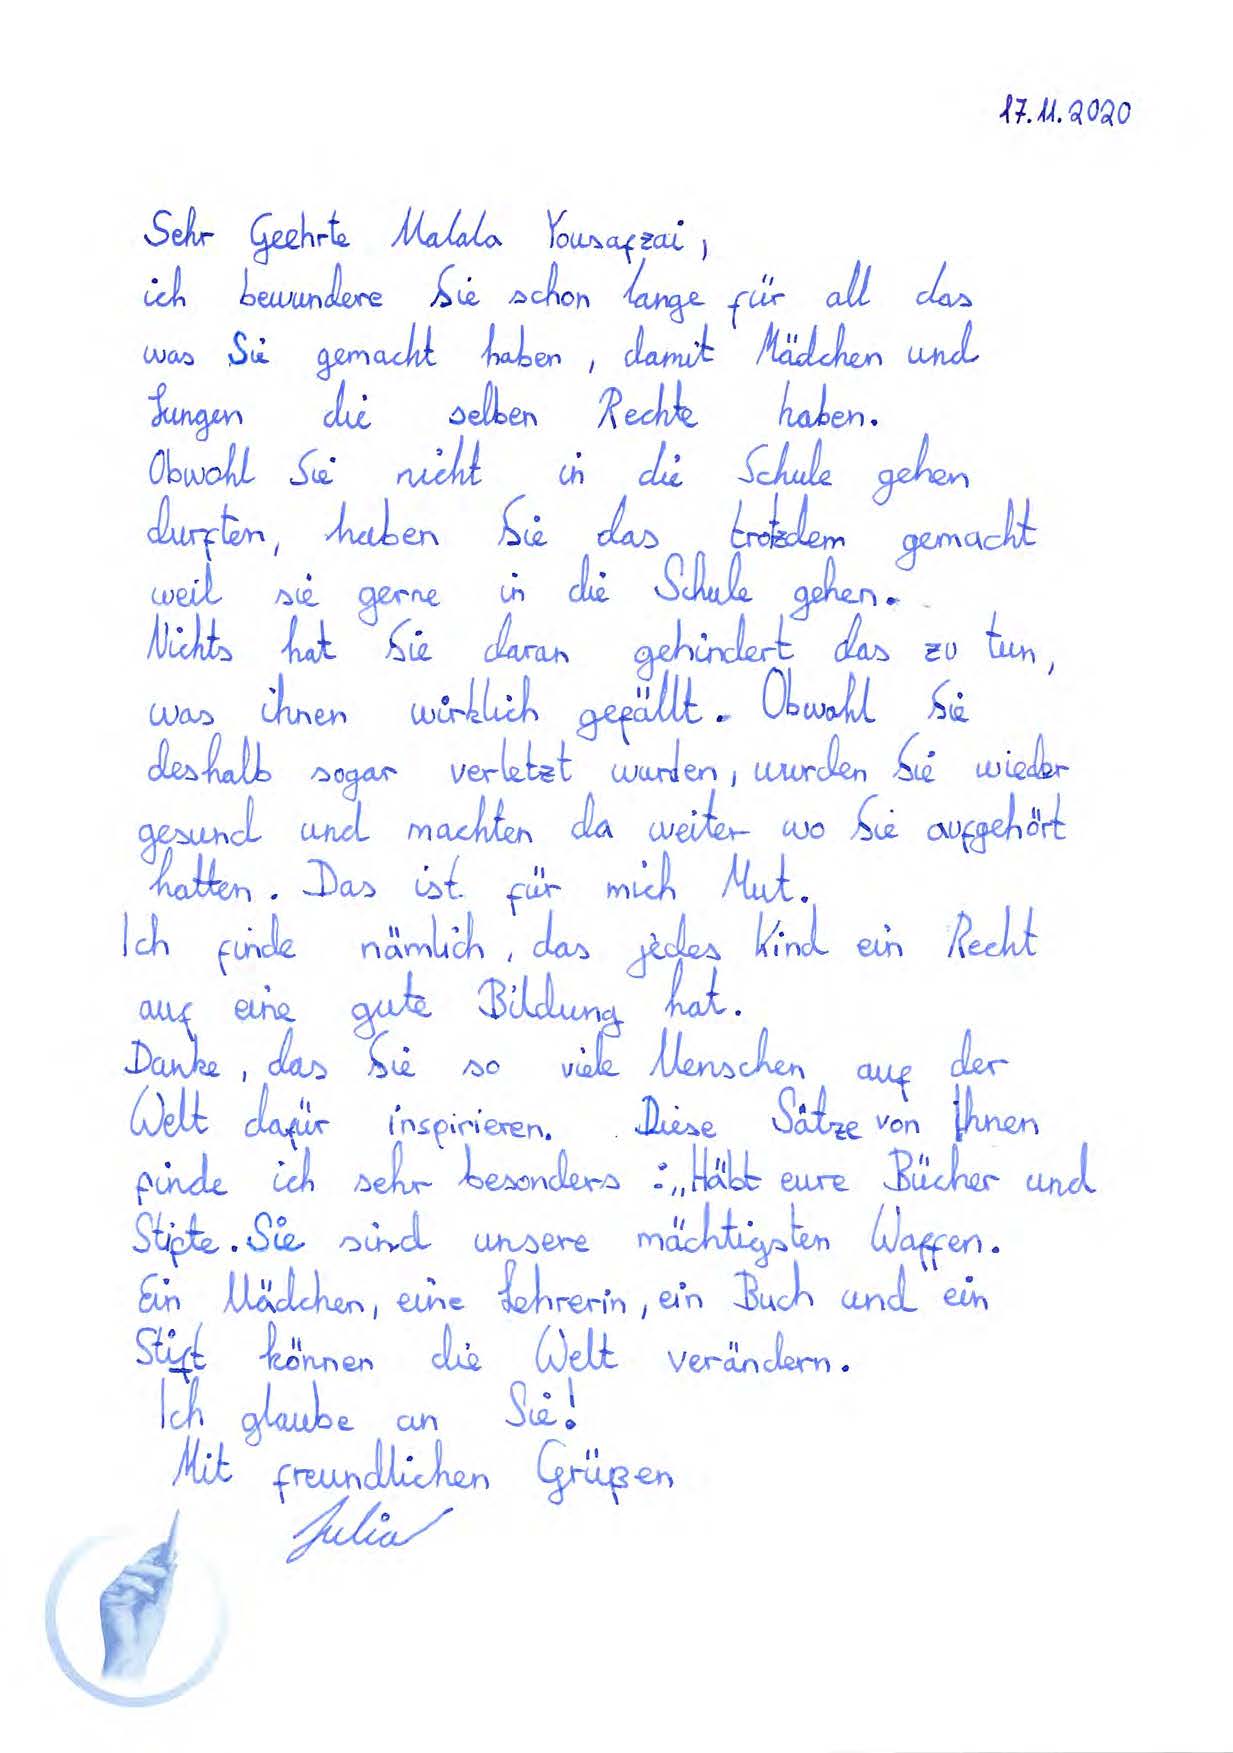 17.11.2020
Sehr Geehrte Malala Yousafzai,
ich bewundere Sie schon lange für all das
was Sie gemacht haben, damit Mädchen und
Jungen die selben Rechte haben.
Obwohl Sie nicht in die Schule gehen
durften, haben Sie das trotzdem gemacht
weil sie gerne in die Schule gehen.
Nichts hat Sie daran gehindert das zu tun,
was ihnen wirklich gefällt. Obwohl Sie
deshalb sogar verletzt wurden, wurden Sie wieder
gesund und machten da weiter wo Sie aufgehört
hatten. Das ist für mich Mut.
Ich finde nämlich, das jedes Kind ein Recht
auf eine gute Bildung hat.
Danke, das Sie so viele Menschen auf der
Welt dafür inspirieren. Diese Sätze von Ihnen
finde ich sehr besonders: „Häbt eure Bücher und
Stifte. Sie sind unsere mächtigsten Waffen.
Ein Mädchen, eine Lehrerin, ein Buch und ein
Stift können die Welt verändern.
Ich glaube an Sie!
Mit freundlichen Grüßen
Julia